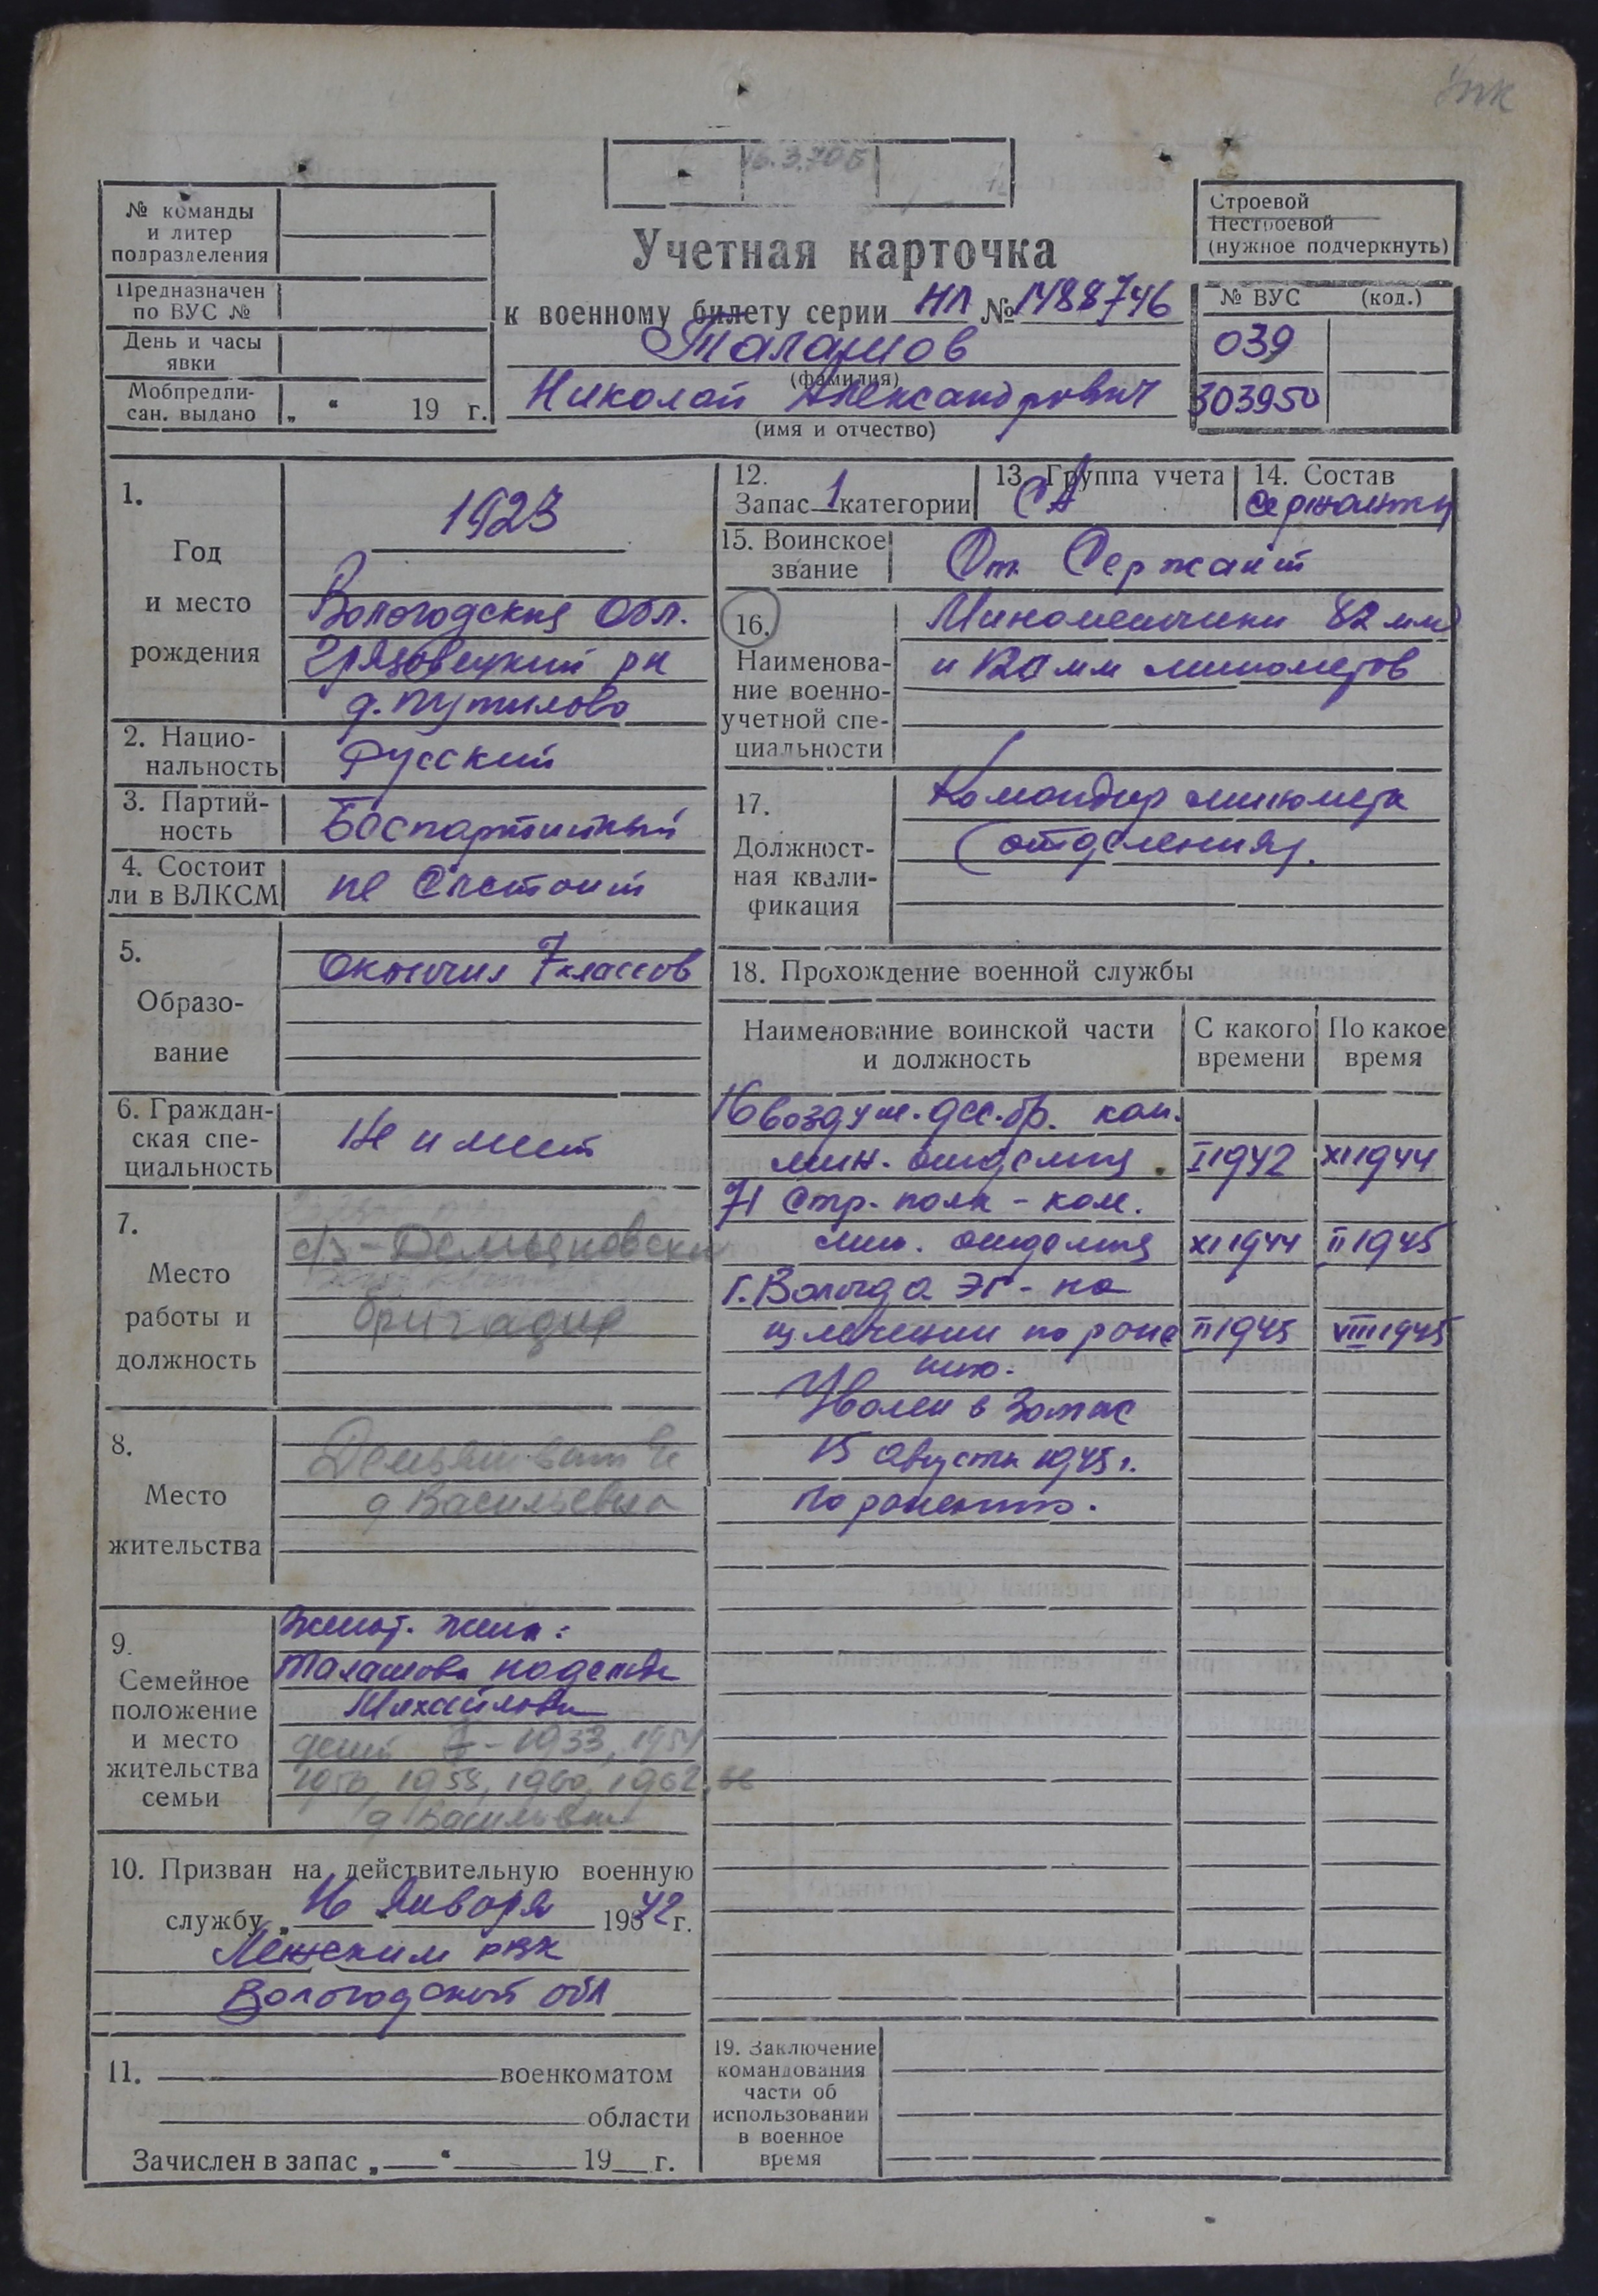 16.3.70Б
№ команды
и литер
подразделения
Предназначен
по ВУС №
День и часы
явки
Мобпредпи-
сан. выдано „ “ 19 г.
Учетная карточка
к военному билету серии НЛ № 1488746
Талашов
(фамилия)
Николай Александрович
(имя и отчество)
Строевой
Нестроевой
(нужное подчеркнуть)
№ ВУС (код.)
039
303950
1.
Год
и место
рождения
1923
Вологодская обл.
Грязовецкий рн
д. Путилово
2. Нацио-
нальность
Русский
3. Партий-
ность
Беспартийный
4. Состоит
ли в ВЛКСМ
не состоит
5.
Образо-
вание
Окончил 7 классов
6. Граждан-
ская спе-
циальность
Не имеет
7.
Место
работы и
должность
с/з - Демьяновский
бригадир
8.
Место
жительства
д Васильевка
9.
Семейное
положение
и место
жительства
семьи
Женат. жена:
Талашова Надежда
Михайловна
дети 1933, 1954
1956, 1958, 1960, 1962, 66
10. Призван на действительную военную
службу „ 16 Января 1942 г.
Лежским рвк
Вологодской обл
11. военкоматом
области
Зачислен в запас „ “ 19 г.
12.
Запас 1 категории
13. Группа учета
СА
14. Состав
сержанты
15. Воинское
звание
Ст. Сержант
16.
Наименова-
ние военно-
учетной спе-
циальности
Минометчики 82 мм
и 120 мм минометов
17.
Должност-
ная квали-
фикация
Командир миномета
(отделения).
18. Прохождение военной службы
Наименование воинской части
и должность
С какого
времени
По какое
время
16 воздуш. дес. бр. ком.
мин. отделения I 1942 XI 1944
71 стр. полк - ком.
мин. отделения XI 1944 II 1945
г. Вологда ЭГ - на
излечении по ране II 1945 VIII 1945
нию.
Уволен в запас
15 августа 1945 г.
по ранению.
19. Заключение
командования
части об
использовании
в военное
время